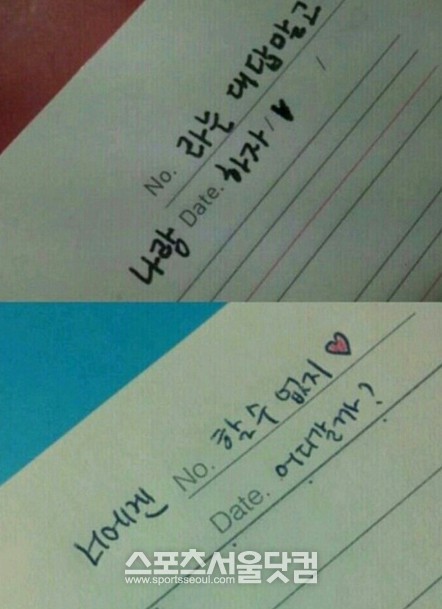 No. 라는 대답말고
나랑 Date. 하자 / ♥ /
너에겐 No. 할 수 없지 ♥
Date. 어디갈까?
스포츠서울닷컴
www.sportsseoul.com